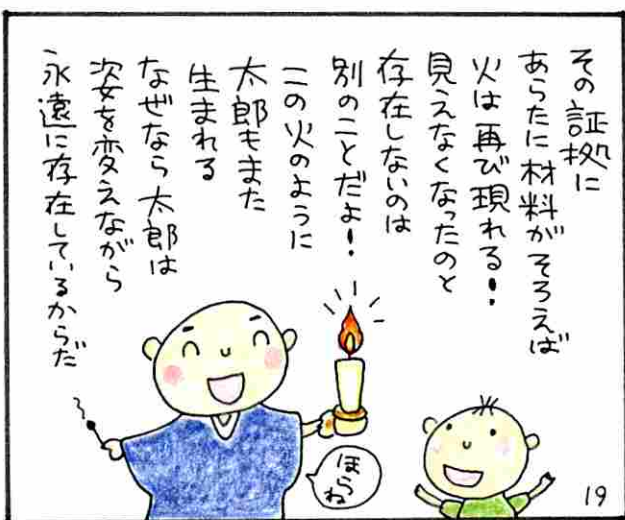 その証拠に
あらたに材料がそろえば
火は再び現れる!
見えなくなったのと
存在しないのは
別のことだよ!
この火のように
太郎もまた
生まれる
なぜなら太郎は
姿を変えながら
永遠に存在しているからだ
ほらね
19